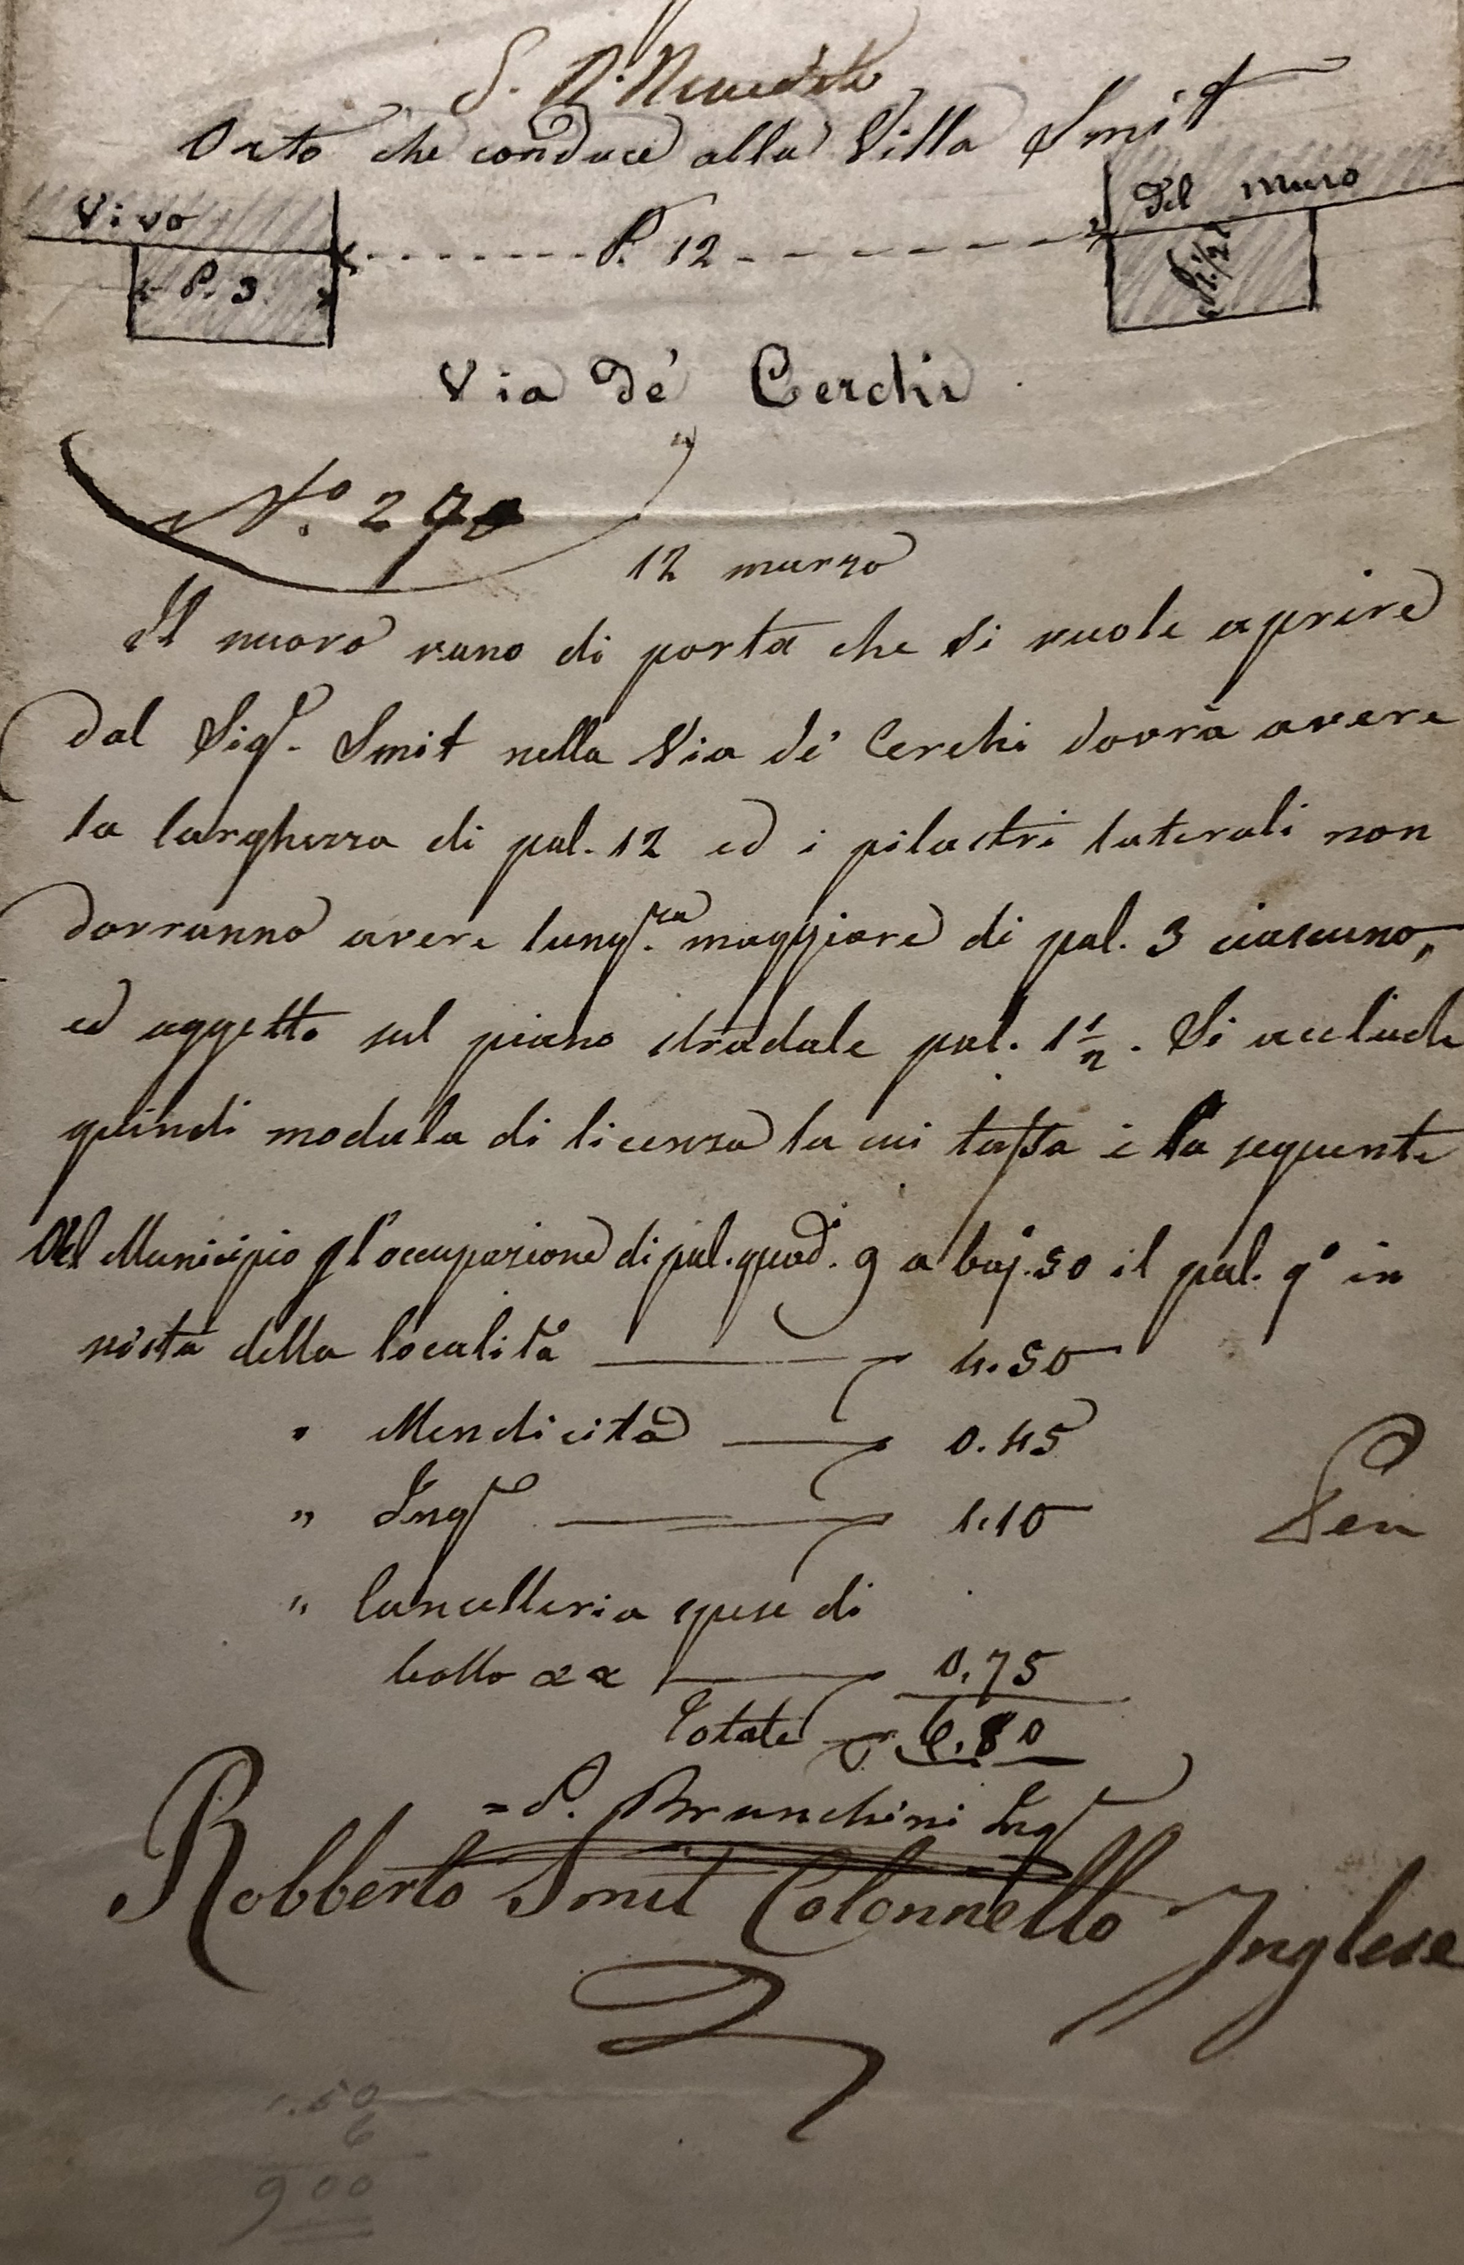 S. N.
Orto che conduce alla Villa Smit
Vivo
del muro
P. 12
P. 3
P. 1 1/2
Via de' Cerchi
N.° 27
12 marzo
Il nuovo vano di porta che si vuole aprire
dal Sigr. Smit nella Via de' Cerchi dovrà avere
la larghezza di pal. 12 ed i pilastri laterali non
dovranno avere lungza. maggiore di pal. 3 ciascuno,
ed aggetto sul piano stradale pal. 1 1/2. Si acclude
quindi modula di licenza la cui tassa è la seguente
Del Municipio pl'occupazione di pal. quadi. 9 a baj. 50 il pal. q° in
vista della località 4.50
" Mendicità 0.45
" Ingr 1.10
" Cancelleria spese di
bollo 0.75
Totale 6.80
= P. Brunchini Ingr
Robberto Smit Colonnello Inglese
1.50
6
9 00